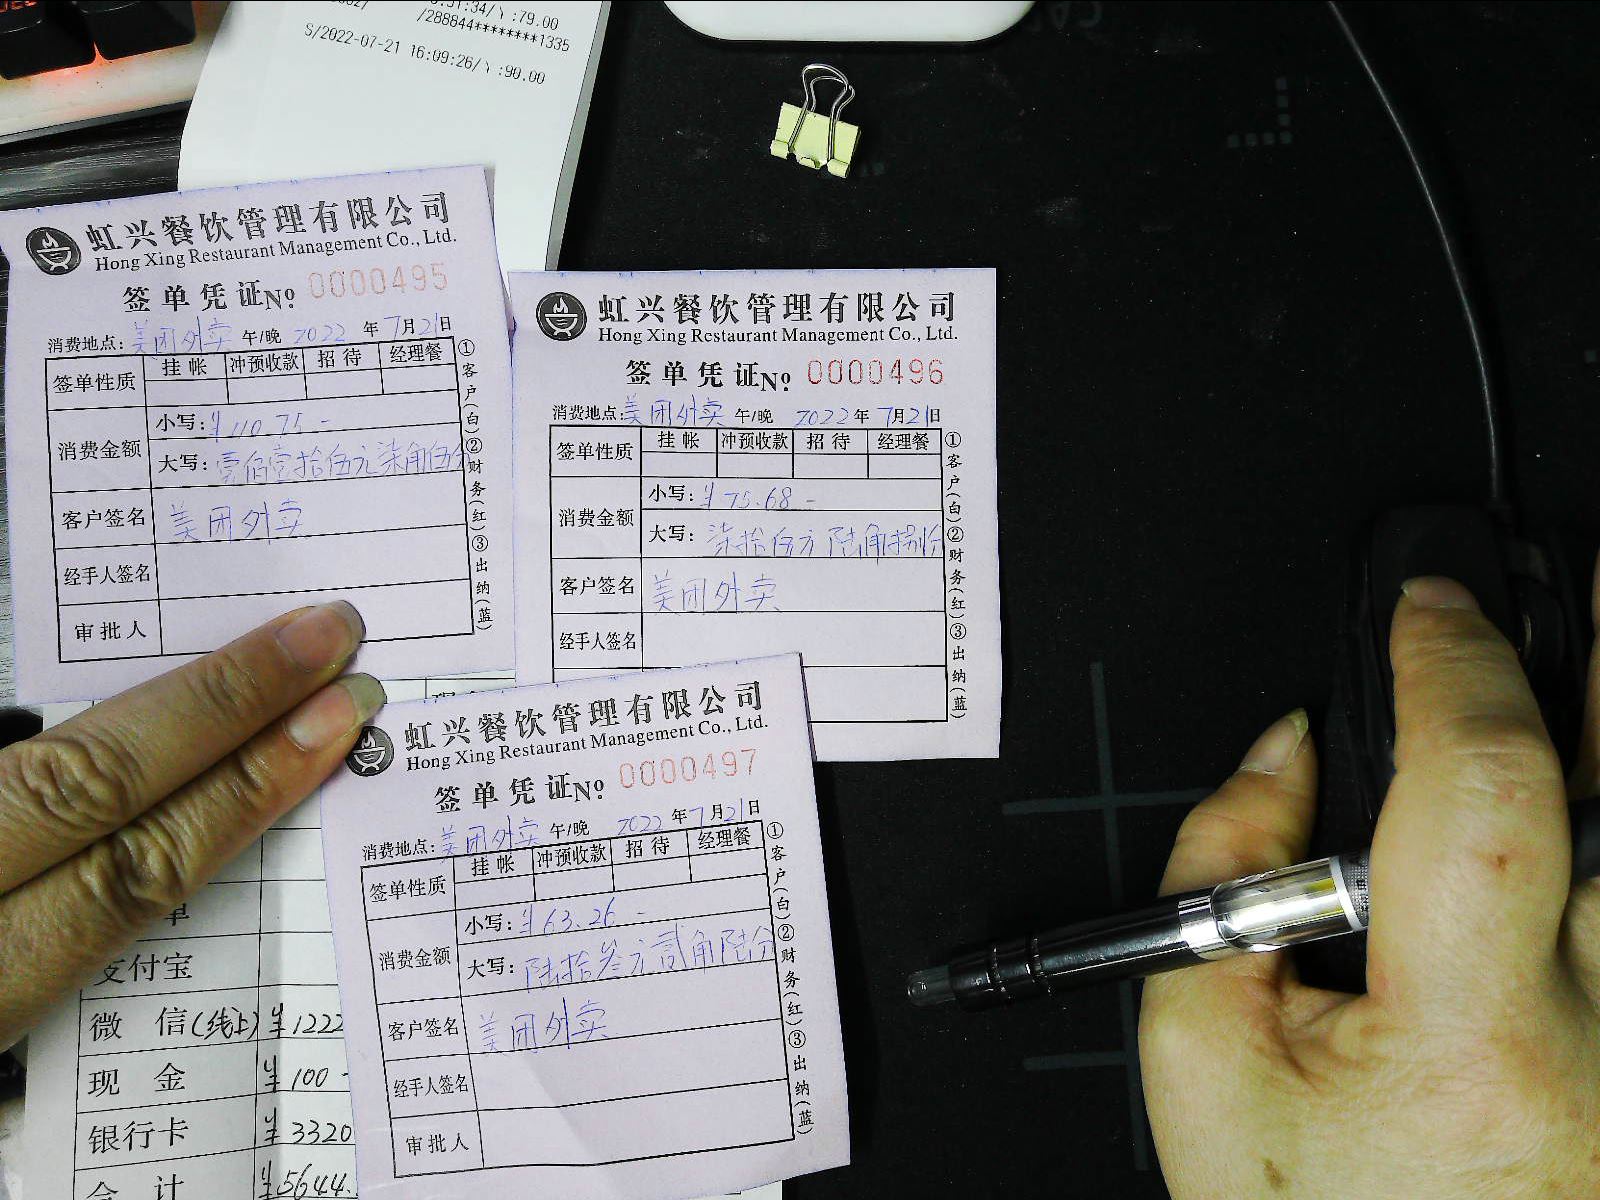 :79.00
/288844********1335
S/2022-07-21 16:09:26/\ :90.00
虹兴餐饮管理有限公司
Hong Xing Restaurant Management Co., Ltd.
签单凭证No 0000495
消费地点: 美团外卖 午/晚 2022 年 7月21日
签单性质 挂帐 冲预收款 招待 经理餐
消费金额 小写: ¥110.75 -
大写: 壹佰壹拾伍元柒角伍分
客户签名 美团外卖
经手人签名
审批人
①客户(白)②财务(红)③出纳(蓝)
虹兴餐饮管理有限公司
Hong Xing Restaurant Management Co., Ltd.
签单凭证No 0000496
消费地点: 美团外卖 午/晚 2022 年 7月21日
签单性质 挂帐 冲预收款 招待 经理餐
消费金额 小写: ¥75.68 -
大写: 柒拾伍元陆角捌分
客户签名 美团外卖
经手人签名
①客户(白)②财务(红)③出纳(蓝)
虹兴餐饮管理有限公司
Hong Xing Restaurant Management Co., Ltd.
签单凭证No 0000497
消费地点: 美团外卖 午/晚 2022 年 7月21日
签单性质 挂帐 冲预收款 招待 经理餐
消费金额 小写: ¥63.26 -
大写: 陆拾叁元贰角陆分
客户签名 美团外卖
经手人签名
审批人
①客户(白)②财务(红)③出纳(蓝)
单
支付宝
微信(线上) ¥1222
现金 ¥100 -
银行卡 ¥3320
合计 ¥5644.